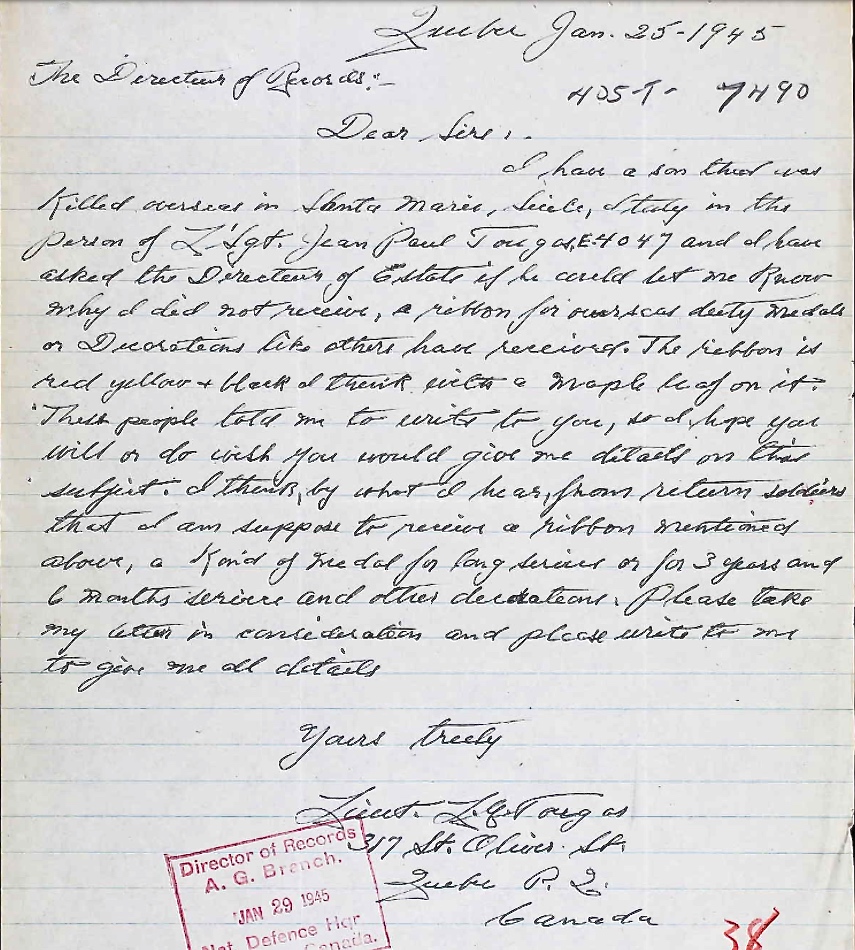 Quebec Jan. 25-1945
The Directeur of Records:-
405-T- 7490
Dear Sirs,
I have a son that was
Killed overseas in Santa Maria, Sicile, Italy in the
person of L/Sgt. Jean Paul Tougas, E.4047 and I have
asked the Directeur of Estate if he could let me Know
why I did not receive, a ribbon for overseas duty medals
or Decorations like others have received. The ribbon is
red yellow + black I think with a maple leaf on it.
These people told me to write to you, so I hope you
will or do wish you would give me details on this
subject. I think, by what I hear, from return soldiers
that I am suppose to receive a ribbon mentioned
above, a Kind of medal for long service or for 3 years and
6 months service and other decorations. Please take
my letter in consideration and please write to me
to give me all details
Yours truely
Lieut. L.G. Tougas
317 St. Oliver St.
Quebec P.Q.
Canada
Director of Records
A. G. Branch.
JAN 29 1945
Nat. Defence Hqr
Canada.
38